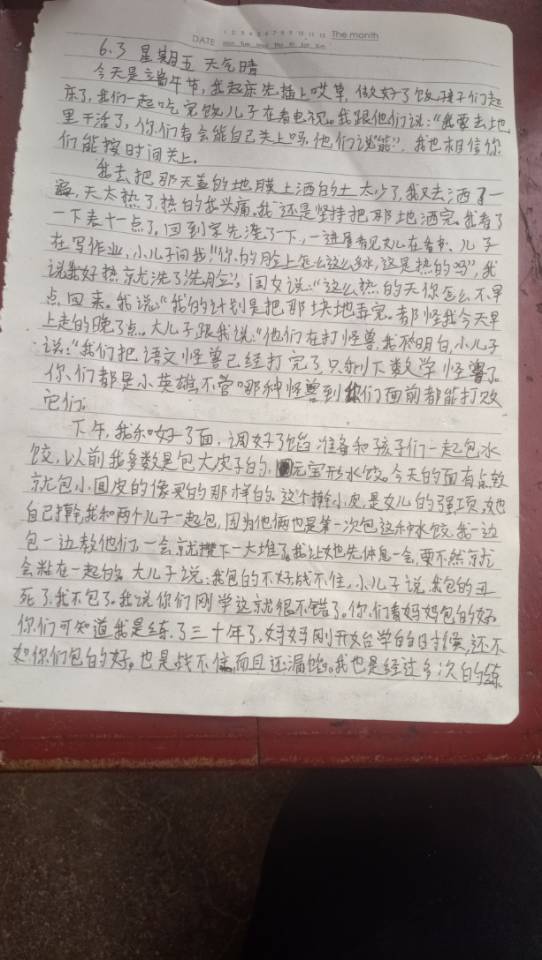 DATE 1 2 3 4 5 6 7 8 9 10 11 12 The month
Mon Tue Wed Thu Fri Sat Sun
6.3 星期五 天气晴
今天是端午节,我起床先插上哎草,做好了饭孩子们起
床了,我们一起吃完饭儿子在看电视。我跟他们说:“我要去地
里干活了,你们看会能自己关上吗,他们说“能”,我也相信你
们能按时间关上。
我去把那天盖的地膜上洒的土太少了,我又去洒了一
遍,天太热了,热的我头痛。我还是坚持把那地洒完。我看了
一下表十一点了,回到家先洗了一下,一进屋看见女儿在看书、儿子
在写作业,小儿子问我“你的脸上怎么这么多水,这是热的吗”,我
说我好热就洗了洗脸”,闺女说:“这么热的天你怎么不早
点回来。我说:“我的计划是把那块地弄完。都怪我今天早
上走的晚了点。大儿子跟我说:“他们在打怪兽,我不明白,小儿子
说:“我们把语文怪兽已经打完了只剩下数学怪兽了。
你们都是小英雄,不管哪种怪兽到你们面前都能打败
它们。
下午,我和好了面,调好了馅准备和孩子们一起包水
饺,以前我多数是包大皮子的,元宝形水饺。今天的面有点软
就包小圆皮的像买的那样的。这个擀小皮,是女儿的强项,她
自己擀,我和两个儿子一起包,因为他俩也是第一次包这种水饺,我一边
包一边教他们,一会就攒下一大堆了,我让她先休息一会,要不然就
会粘在一起的。大儿子说:我包的不好战不住,小儿子说,我包的丑
死了,我不包了。我说你们刚学这就很不错了。你们看妈妈包的好
你们可知道我是练了三十年了,妈妈刚开始学的时候,还不
如你们包的好。也是战不住,而且还漏馅。我也是经过多次的练